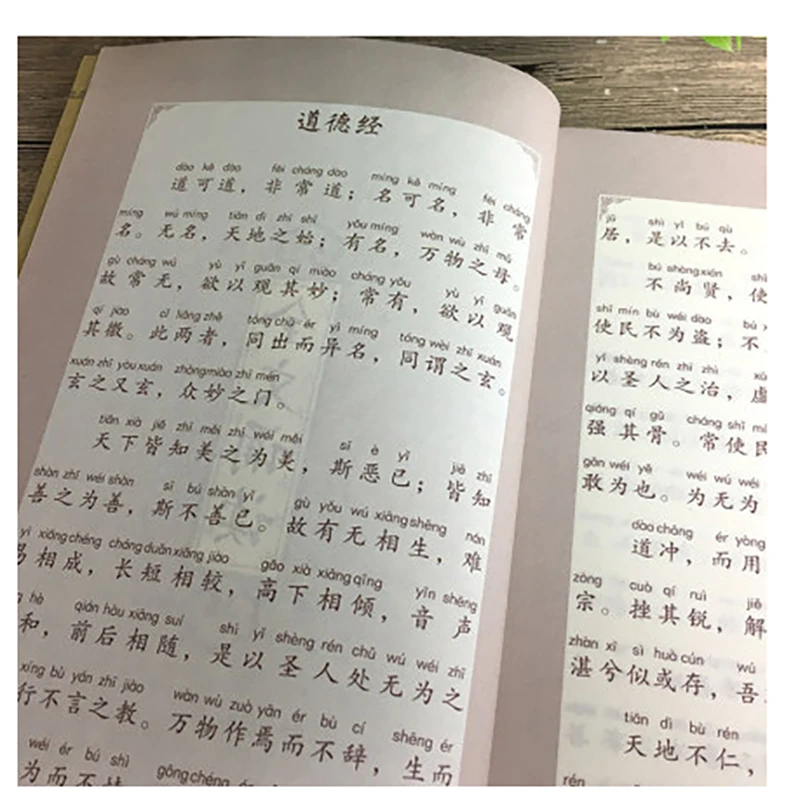 道德经
dào kě dào fēi cháng dào míng kě míng fēi cháng
道可道，非常道；名可名，非常
míng wú míng tiān dì zhī shǐ yǒu míng wàn wù zhī mǔ
名。无名，天地之始；有名，万物之母。
gù cháng wú yù yǐ guān qí miào cháng yǒu yù yǐ guān
故常无，欲以观其妙；常有，欲以观
qí jiào cǐ liǎng zhě tóng chū ér yì míng tóng wèi zhī xuán
其徼。此两者，同出而异名，同谓之玄。
xuán zhī yòu xuán zhòng miào zhī mén
玄之又玄，众妙之门。
tiān xià jiē zhī měi zhī wéi měi sī è yǐ jiē zhī
天下皆知美之为美，斯恶已；皆知
shàn zhī wéi shàn sī bú shàn yǐ gù yǒu wú xiāng shēng nán
善之为善，斯不善已。故有无相生，难
yì xiāng chéng cháng duǎn xiāng jiào gāo xià xiāng qīng yīn shēng
易相成，长短相较，高下相倾，音声
hè qián hòu xiāng suí shì yǐ shèng rén chǔ wú wéi zhī
和，前后相随，是以圣人处无为之
xíng bù yán zhī jiào wàn wù zuò yān ér bù cí shēng ér
行不言之教。万物作焉而不辞，生而
wéi ér bú shì gōng chéng ér
为而不恃
jū shì yǐ bú qù
居，是以不去。
bú shàng xián shǐ
不尚贤，使
shǐ mín bù wéi dào bú
使民不为盗；不
yǐ shèng rén zhī zhì xū
以圣人之治，虚
qiáng qí gǔ cháng shǐ mí
强其骨。常使民
gǎn wéi yě wéi wú wéi
敢为也。为无为
dào chōng ér yòng
道冲，而用
zōng cuò qí ruì jiě
宗。挫其锐，解
zhàn xī sì huò cún wú
湛兮似或存，吾
tiān dì bù rén
天地不仁，
rén